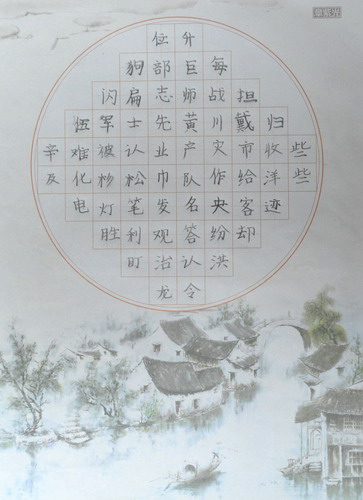 位升
狗部巨每
闪扁志师战担
伍军士先黄川戴归
辛难被认业产灾市收些
及化杉松巾队作给洋些
电灯笔发名央客迹
胜利观答纷却
町治认洪
龙令